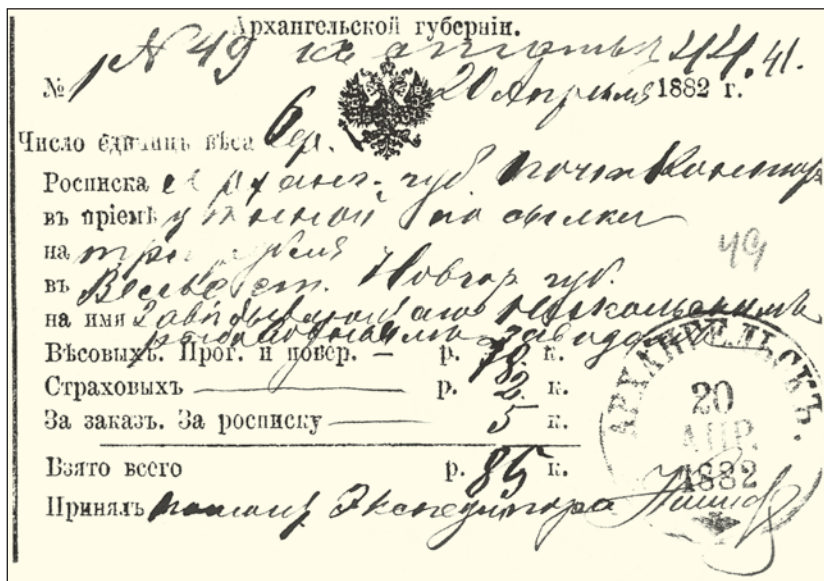 Архангельской губерніи.
№ 1 N 49
20 Апрѣля 1882 г.
Число единицъ вѣса 6 ф.
Росписка Арханг. губ. почт. Контор
въ пріемѣ цѣнной посылки
на три рубля
въ ст. Новгор. губ.
49
на имя Завѣдывающаго Никольскимъ
рыбоводнымъ заводомъ
Вѣсовыхъ. Прог. и повер. — р. 78 к.
Страховыхъ — р. 2 к.
За заказъ. За росписку — 5 к.
Взято всего р. 85 к.
Принялъ помощ Экспедитора
АРХАНГЕЛЬСКЪ.
20
АПР.
1882